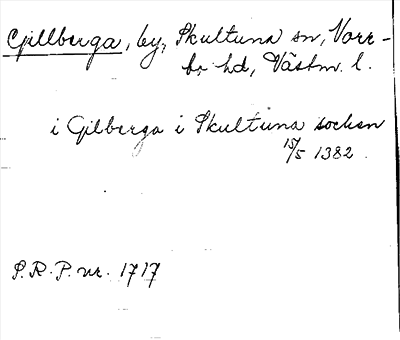 Gillberga, by, Skultuna sn, Norr-
bo hd, Västm. l.
i Gilberga i Skultuna socken
15/5 1382.
S.R.P. nr. 1717